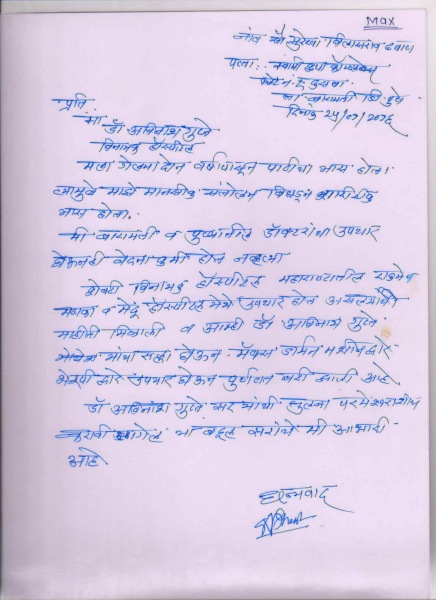 MAX
नांव सौ सुरेखा विलासराव दबाप
पत्ता:- स्वामी कृपा कॉम्प्लेक्स
फ्लॅट नं
ता बारामती जि पुणे
दिनांक २५/०१/२०१६
प्रति,
मा.
डॉ अविनाश गुप्ते
विनायक हॉस्पीटल
मला गेल्या दोन वर्षापासून पाठीचा त्रास होता.
त्यामुळे माझे मानसीक संतोलन बिघडून शारीरीक
त्रास होता.
मी बारामती व पुण्यातील डॉक्टरांचा उपचार
घेऊनही वेदना कमी होत नव्हत्या
शेवटी विनायक हॉस्पीटल महाराष्टातील एकमेव
मणका व मेंदू हॉस्पीटल मध्ये उपचार होत असल्याचे
माहीती मिळाली व आम्ही डॉ अविनाश गुप्ते
यांचा सल्ला घेऊन मॅक्स जर्मन मशीनद्वारे
थेरपी द्वारे उपचार घेऊन पुर्णपणे बरी झाली आहे.
डॉ अविनाश गुप्ते सर यांची तुलना परमेश्वराशीच
करावी लागेल या बद्दल सरांचे मी आभारी
आहे.
धन्यवाद